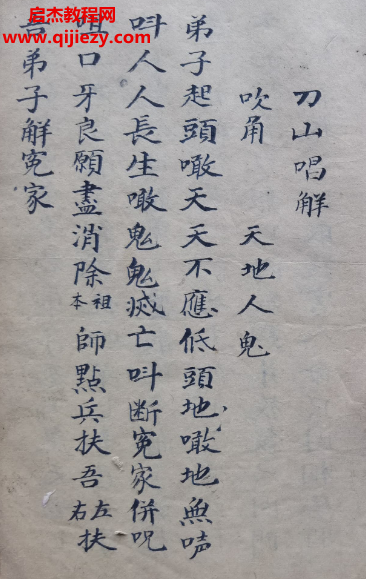 启杰教程网
www.qijiezy.com
刀山唱觧
吹角 天地人鬼
弟子起頭噉天天不應低頭地噉地無
呌人人長生噉鬼鬼滅亡呌断冤家併呪
口牙良願盡消除祖本師點兵扶吾左右扶
弟子觧冤家